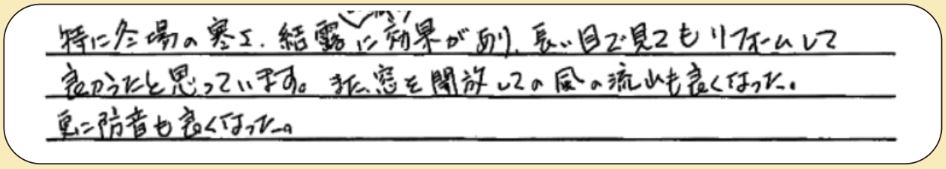 特に冬場の寒さ、結露に効果があり、長い目で見てもリフォームして
良かったと思っています。また、窓を開放しての風の流れも良くなった。
更に防音も良くなった。